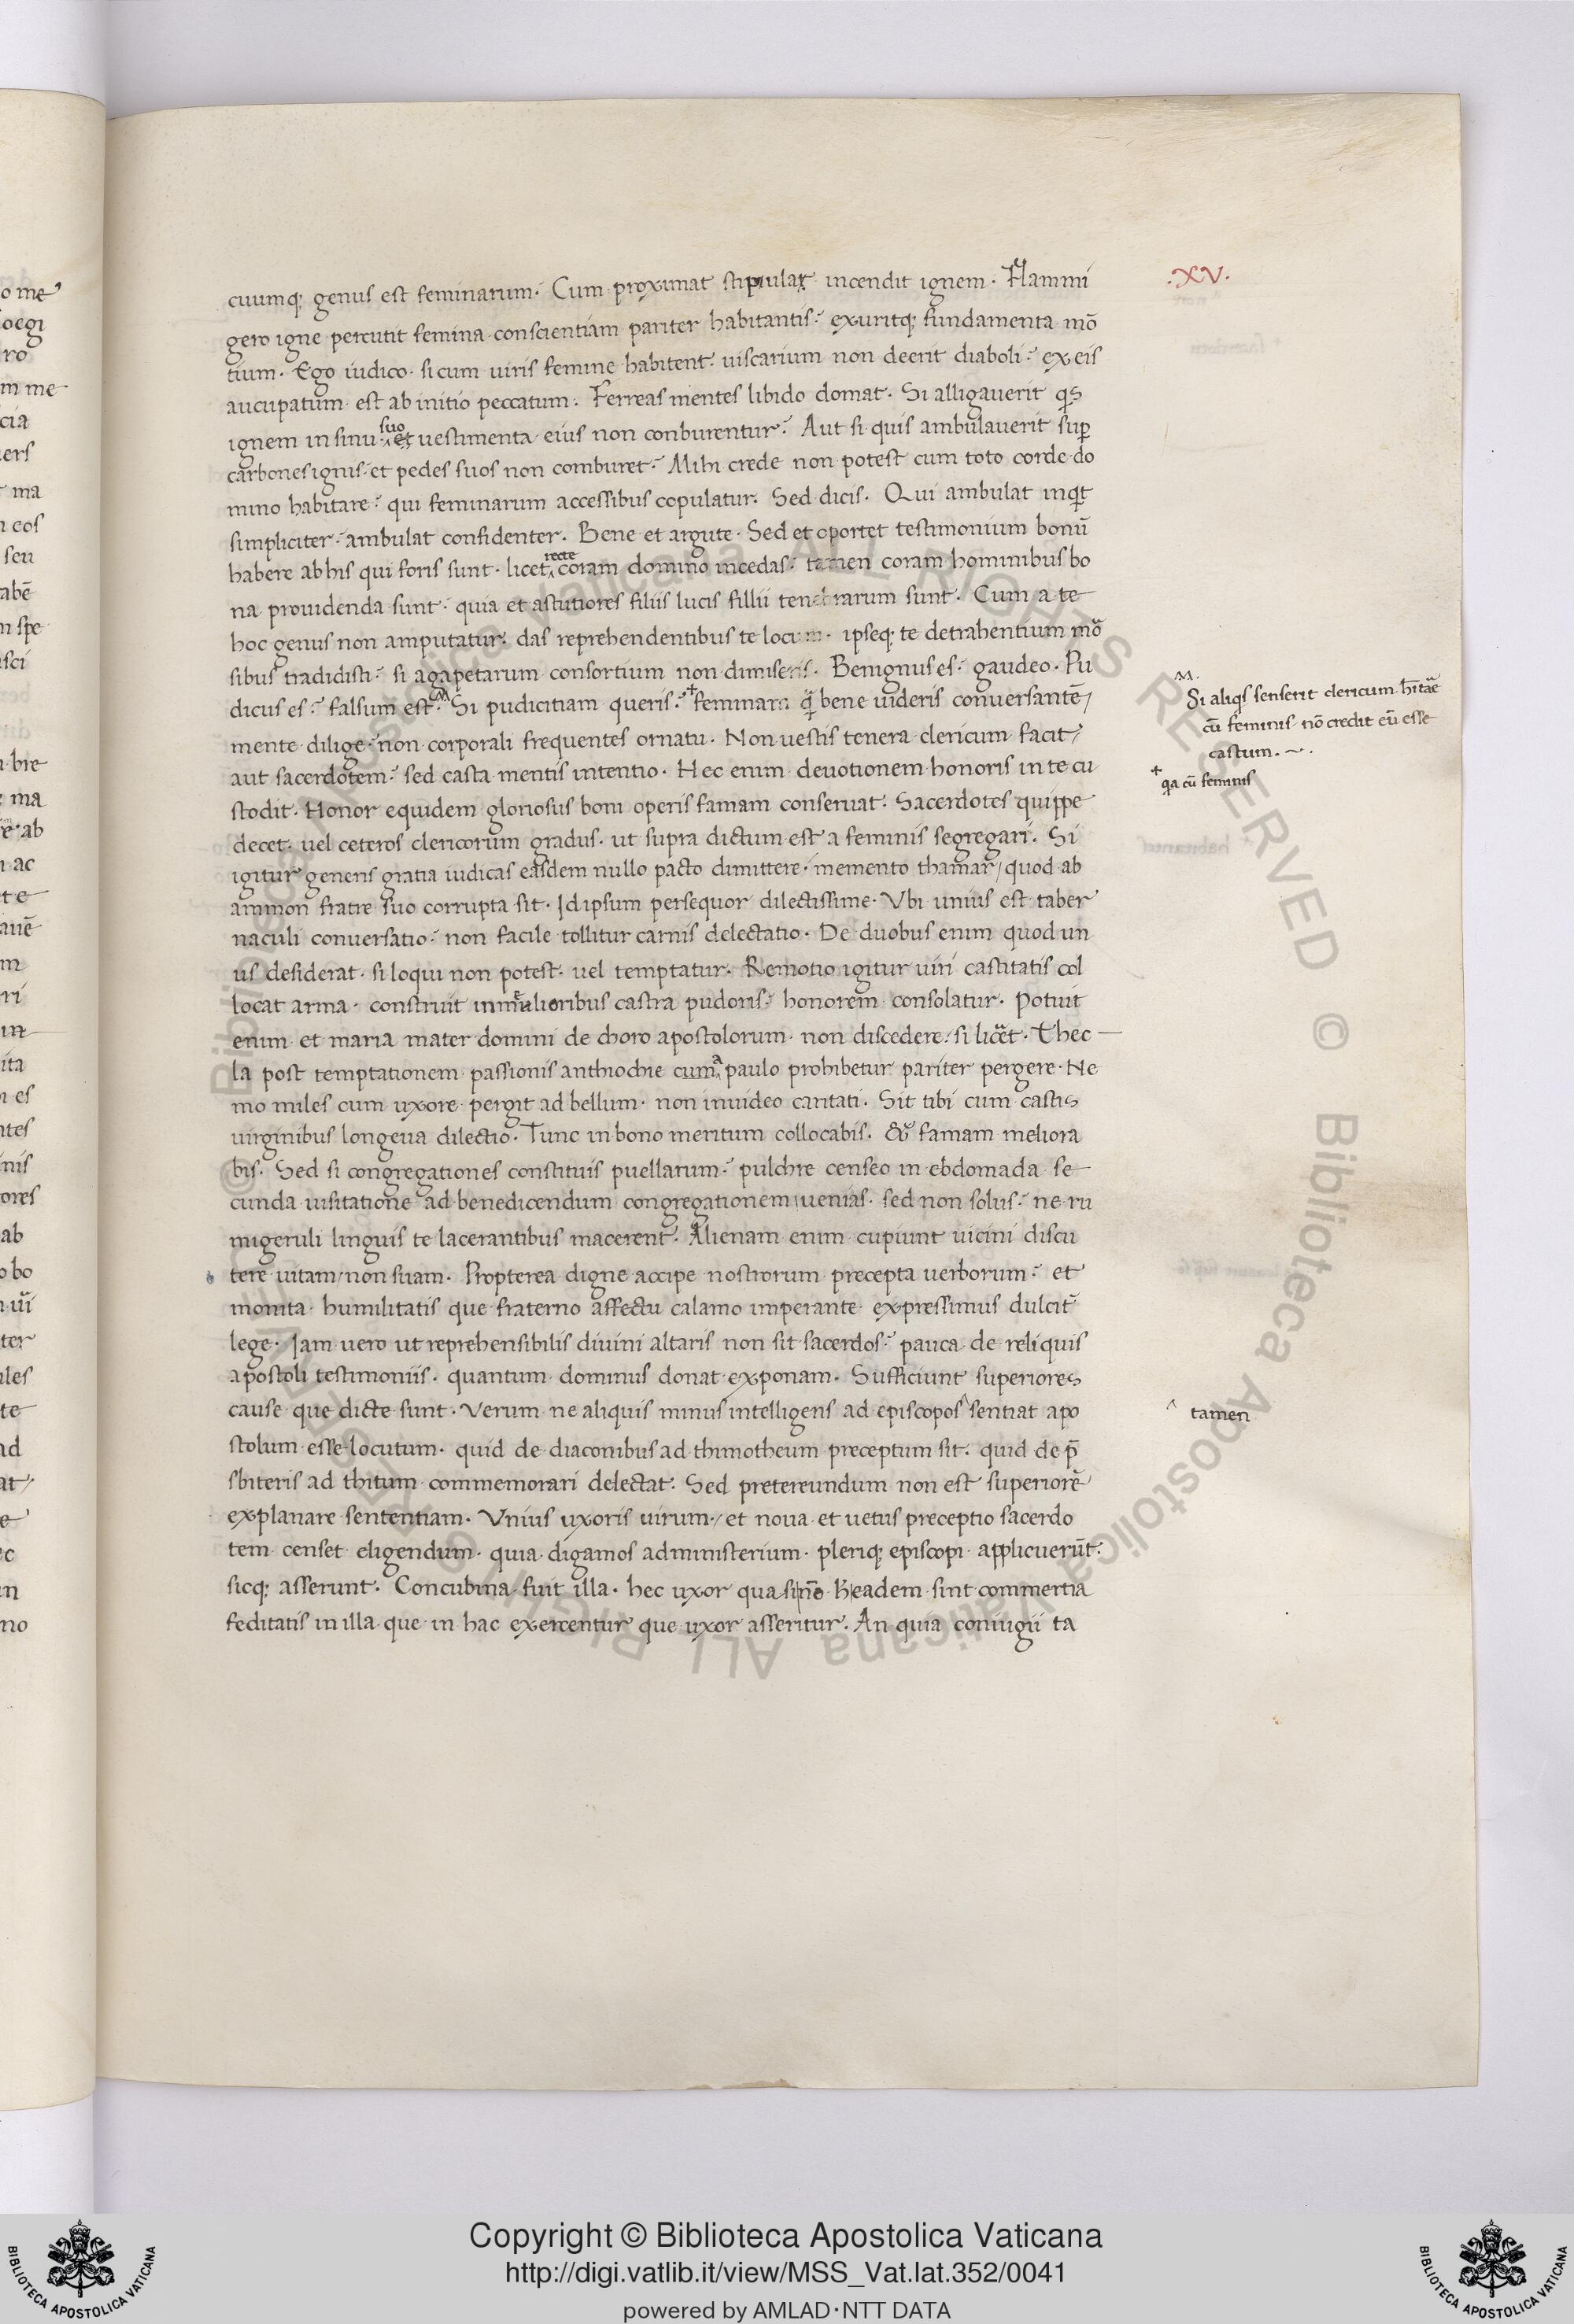 .XV.
cuumq; genus est feminarum. Cum proximat stipula incendit ignem. Flammi
gero igne percutit femina conscientiam pariter habitantis: exuritq; fundamenta mō
tium. Ego iudico. si cum uiris femine habitent. uiscarium non deerit diaboli: ex eis
aucupatum est ab initio peccatum. Ferreas mentes libido domat. Si alligauerit qs
ignem in sinu suo et uestimenta eius non conburentur: Aut si quis ambulauerit sup
carbones ignis: et pedes suos non comburet: Mihi crede non potest cum toto corde do
mino habitare: qui feminarum accessibus copulatur. Sed dicis. Qui ambulat inqt
simpliciter: ambulat confidenter. Bene et argute. Sed et oportet testimonium bonū
habere ab his qui foris sunt. licet recte coram domino incedas: tamen coram hominibus bo
na prouidenda sunt. quia et astutiores filiis lucis fillii tenebrarum sunt. Cum a te
hoc genus non amputatur. das reprehendentibus te locum. ipseq; te detrahentium mo
sibus tradidisti: si agapetarum consortium non dimiseris. Benignus es: gaudeo. Pu
dicus es: falsum est. Si pudicitiam queris: + feminam q bene uideris conuersantē/
mente dilige: non corporali frequentes ornatu. Non uestis tenera clericum facit/
aut sacerdotem: sed casta mentis intentio. Hec enim deuotionem honoris in te cu
stodit. Honor equidem gloriosus boni operis famam conseruat. Sacerdotes quippe
decet. uel ceteros clericorum gradus. ut supra dictum est a feminis segregari. Si
igitur generis gratia iudicas easdem nullo pacto dimittere. memento thamar/ quod ab
ammon fratre suo corrupta sit. Id ipsum persequor dilectissime. Vbi unius est taber
naculi conuersatio: non facile tollitur carnis delectatio. De duobus enim quod un
us desiderat. si loqui non potest. uel temptatur. Remotio igitur uiri castitatis col
locat arma. construit in mulieribus castra pudoris: honorem consolatur. Potuit
enim et maria mater domini de choro apostolorum non discedere. si licet. Thec
la post temptationem passionis anthiochie cum a paulo prohibetur pariter pergere. Ne
mo miles cum uxore pergit ad bellum. non inuideo caritati. Sit tibi cum castis
uirginibus longeua dilectio. Tunc in bono meritum collocabis. famam meliora
bis. Sed si congregationes constituis puellarum: pulchre censeo in ebdomada se
cunda uisitatione ad benedicendum congregationem uenias. sed non solus: ne ru
migeruli linguis te lacerantibus macerent. Alienam enim cupiunt uicini discu
tere uitam/ non suam. Propterea digne accipe nostrorum precepta uerborum: et
monita humilitatis que fraterno affectu calamo imperante expressimus dulcit
lege. Iam uero ut reprehensibilis diuini altaris non sit sacerdos: pauca de reliquis
apostoli testimoniis. quantum dominus donat exponam. Sufficiunt superiores
cause que dicte sunt. Verum ne aliquis minus intelligens ad episcopos ^ sentiat apo
stolum esse locutum. quid de diaconibus ad thimotheum preceptum sit. quid de p̄
sbiteris ad thitum commemorari delectat. Sed pretereundum non est superiorē
explanare sententiam. Vnius uxoris uirum/ et noua et uetus preceptio sacerdo
tem censet eligendum. quia digamos ad ministerium. pleriq; episcopi applicuerūt.
sicq; asserunt. Concubina fuit illa. hec uxor quasi nō eadem sint commertia
feditatis in illa que in hac exercentur que uxor asseritur. An quia coniugii ta
Si aliqs senserit clericum hītāe
cū feminis nō credit eū esse
castum.
+ qa cū feminis
^ tamen
o me
oegi
ro
m me
cia
ers
ma
eos
seu
abē
spe
sci
bre
ma
ab
ac
te
auē
m
ri
in
ita
es
ntes
nis
ores
ab
bo
ter
iles
te
ad
at
e
c
in
no
© Biblioteca Apostolica Vaticana ALL RIGHTS RESERVED © Biblioteca Apostolica Vaticana ALL RIGHTS RESERVED
BIBLIOTECA APOSTOLICA VATICANA
Copyright © Biblioteca Apostolica Vaticana
http://digi.vatlib.it/view/MSS_Vat.lat.352/0041
powered by AMLAD·NTT DATA
BIBLIOTECA APOSTOLICA VATICANA